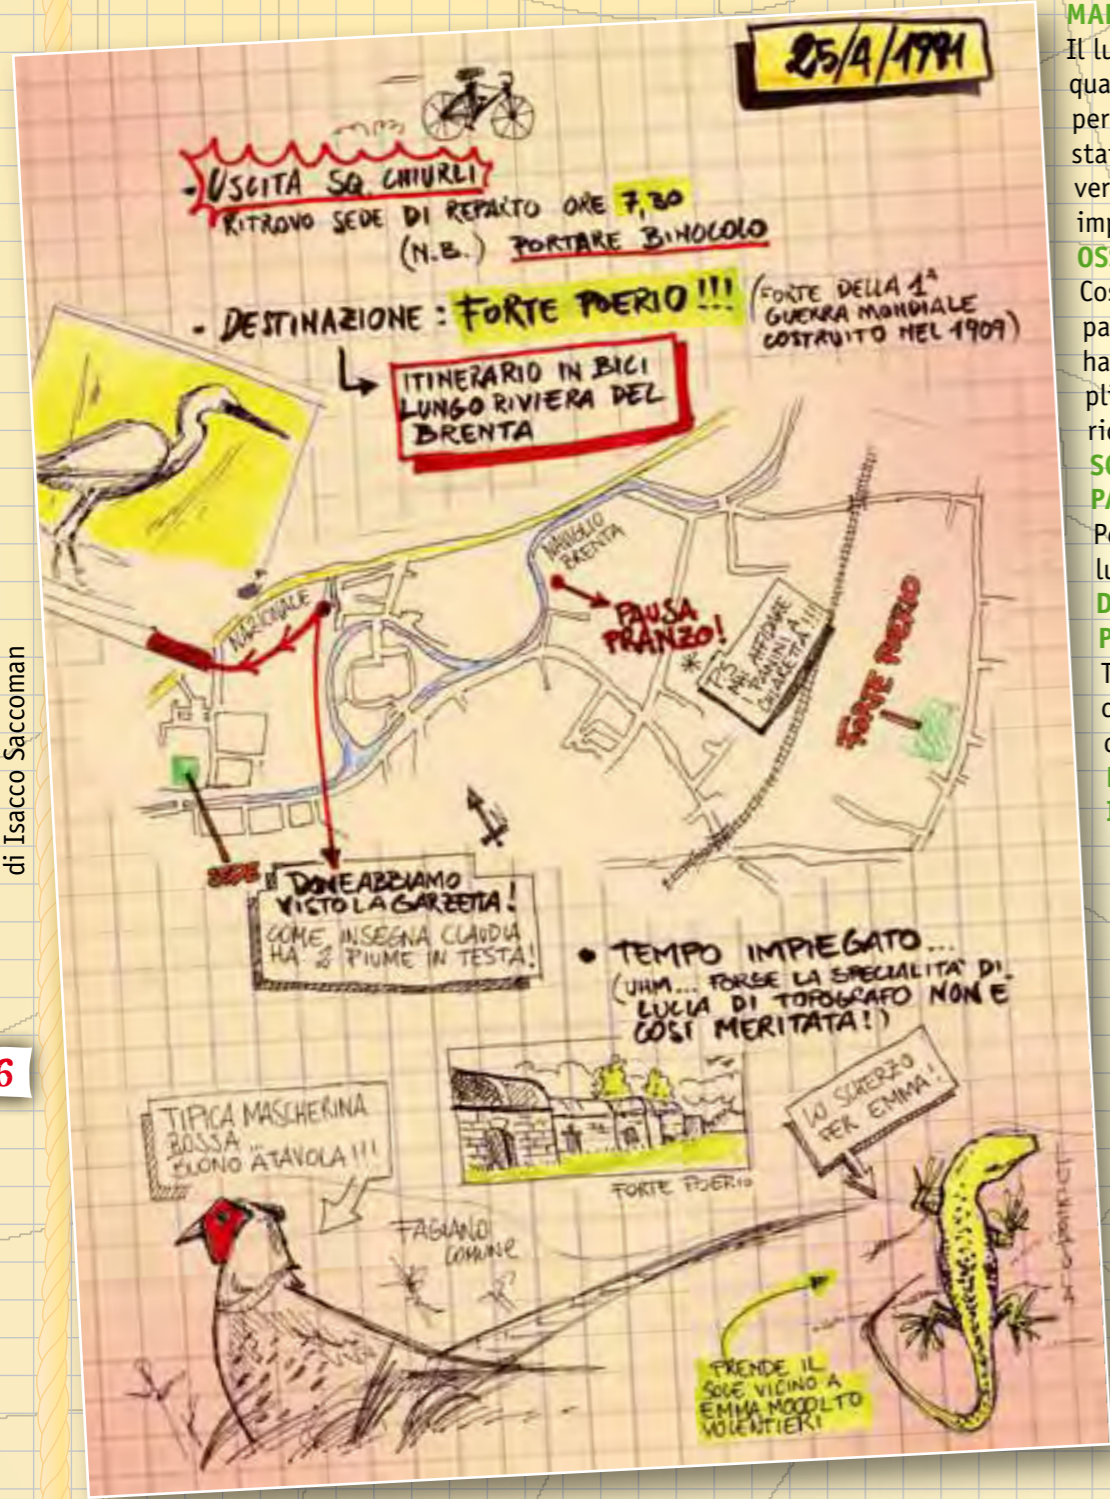 25/4/1991
- USCITA SQ. CHIURLI
RITROVO SEDE DI REPARTO ORE 7,30
(N.B.) PORTARE BINOCOLO
- DESTINAZIONE: FORTE POERIO!!!
(FORTE DELLA 1ª
GUERRA MONDIALE
COSTRUITO NEL 1909)
ITINERARIO IN BICI
LUNGO RIVIERA DEL
BRENTA
NAVIGLIO
BRENTA
NAZIONALE
PAUSA
PRANZO!
*
PS
MAI AFFIDARE
I PANINI A
CHIARETTA!!!
FORTE POERIO
SEDE
DOVE ABBIAMO
VISTO LA GARZETTA!
COME INSEGNA CLAUDIA
HA 2 PIUME IN TESTA!
• TEMPO IMPIEGATO...
(UHM... FORSE LA SPECIALITA' DI
LUCIA DI TOPOGRAFO NON E
COSÌ MERITATA!)
TIPICA MASCHERINA
ROSSA ...
BUONO A TAVOLA!!!
FORTE POERIO
LO SCHERZO
PER EMMA!
FAGIANO
COMUNE
PRENDE IL
SOLE VICINO A
EMMA MOOOLTO
VOLENTIERI
di Isacco Saccoman
6
Il lu
qua
per
sta
ver
imp
OSS
Cos
pa
ha
pl
ric
SO
PA
Pe
lu
D
P
T